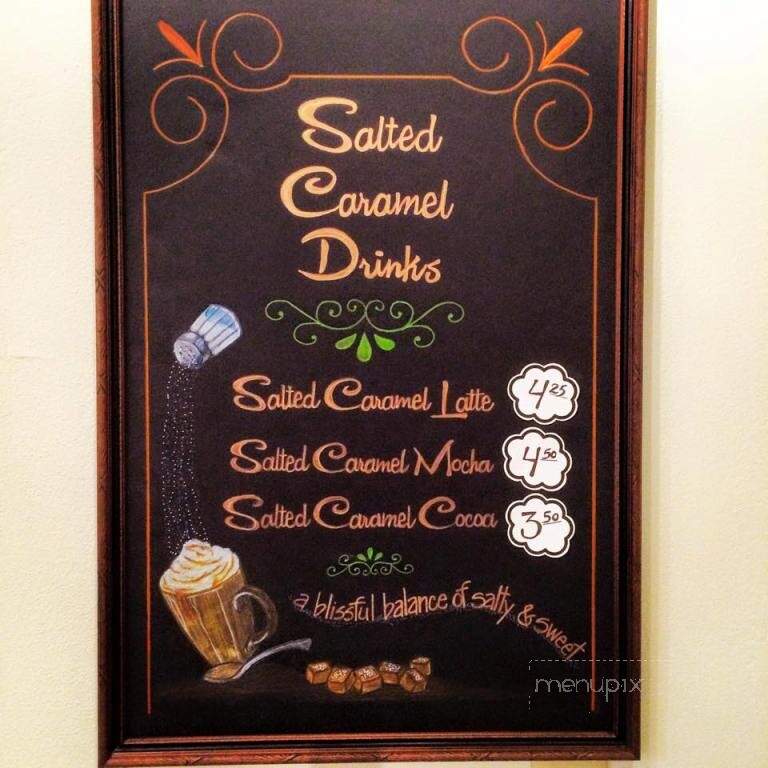 Salted
Caramel
Drinks
Salted Caramel Latte 4.25
Salted Caramel Mocha 4.50
Salted Caramel Cocoa 3.50
a blissful balance of salty & sweet
menupix